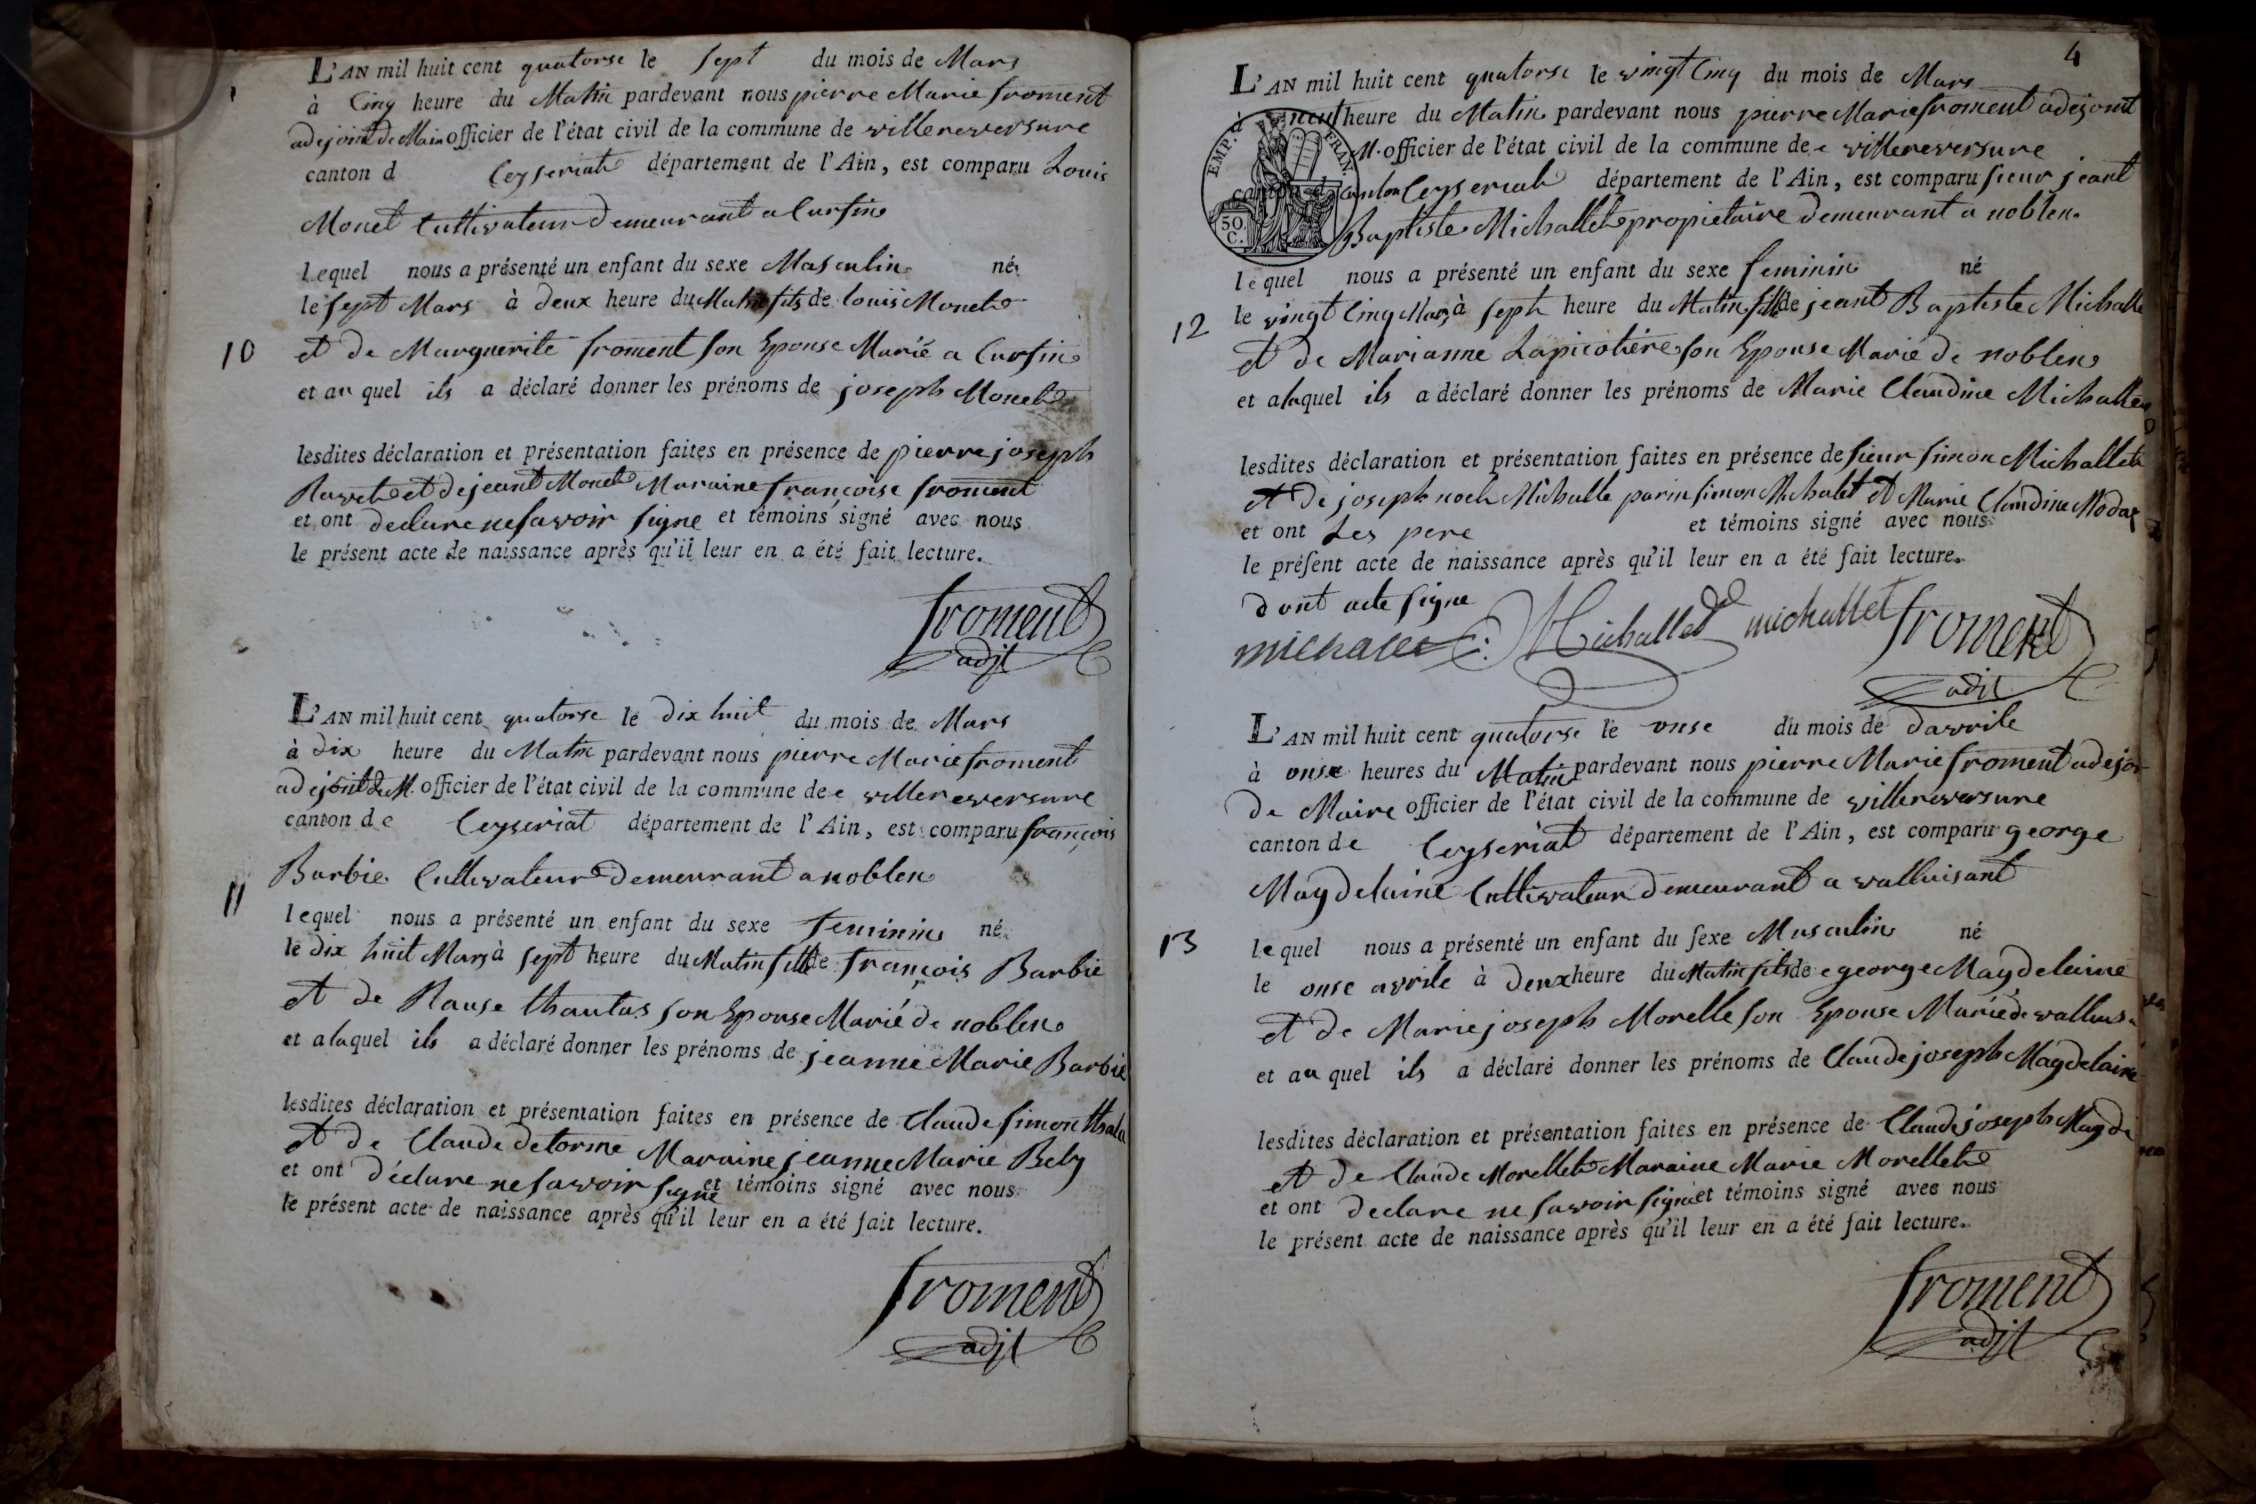 L'AN mil huit cent quatorse le sept du mois de Mars
à Cinq heure du Matin pardevant nous pierre Marie froment
adejoint de Maire officier de l'état civil de la commune de villereversure
canton d Ceyseriat département de l'Ain, est comparu Louis
Monet Cultivateur demeurant a Cursin
lequel nous a présenté un enfant du sexe Masculin né
le sept Mars à deux heure du Matin fils de louis Monet
10 et de Marguerite froment son Epouse Marié a Cursin
et au quel ils a déclaré donner les prénoms de joseph Monet
lesdites déclaration et présentation faites en présence de pierre joseph
Ravet et de jeant Monet Maraine françoise froment
et ont declare ne savoir signe et témoins signé avec nous
le présent acte de naissance après qu'il leur en a été fait lecture.
froment
adjt
L'AN mil huit cent quatorse le dix huit du mois de Mars
à dix heure du Matin pardevant nous pierre Marie froment
adejoint de M. officier de l'état civil de la commune de e villereversure
canton de Ceyseriat département de l'Ain, est comparu françois
Barbie Cultivateur demeurant a noblen
11 lequel nous a présenté un enfant du sexe feminin né
le dix huit Mars à sept heure du Matin fille de françois Barbie
et de Rause thautas son Epouse Marié de noblen
et a laquel ils a déclaré donner les prénoms de jeanne Marie Barbie
lesdites déclaration et présentation faites en présence de Claude simon
et de Claude delorme Maraine jeanne Marie Beby
et ont déclare ne savoir signe et témoins signé avec nous
le présent acte de naissance après qu'il leur en a été fait lecture.
froment
adjt
4
L'AN mil huit cent quatorse le vingt Cinq du mois de Mars
à neuf heure du Matin pardevant nous pierre Marie froment adejoint
M. officier de l'état civil de la commune de e villereversure
canton d canton Ceyseriat département de l'Ain, est comparu sieur jeant
EMP. FRAN.
50 C.
Baptiste Michallet propietaire demeurant a noblen
lequel nous a présenté un enfant du sexe feminin né
12 le vingt Cinq Mars à sept heure du Matin fille de jeant Baptiste Michalle
et de Marianne Lapicotière son Epouse Marié de noblen
et a laquel ils a déclaré donner les prénoms de Marie Claudine Michallet
lesdites déclaration et présentation faites en présence de sieur simon Michallet
et de joseph noel Michalle parin simon Michalet et Marie Claudine
et ont Les pere et témoins signé avec nous
le présent acte de naissance après qu'il leur en a été fait lecture.
dont acte signe
michallet Michallet michallet froment
adjt
L'AN mil huit cent quatorse le onse du mois de davrile
à onse heures du Matin pardevant nous pierre Marie froment adejoi
de Maire officier de l'état civil de la commune de villereversure
canton de Ceyseriat département de l'Ain, est comparu george
Magdelaine Cultivateur demeurant a valluisant
13 lequel nous a présenté un enfant du sexe Masculin né
le onse avrile à deux heure du Matin fils de e george Magdelaine
et de Marie joseph Morelle son Epouse Marié de valluis
et au quel ils a déclaré donner les prénoms de Claude joseph Magdelaine
lesdites déclaration et présentation faites en présence de Claude joseph Magde
et de Claude Morellet Maraine Marie Morellet
et ont declare ne savoir signe et témoins signé avec nous
le présent acte de naissance après qu'il leur en a été fait lecture.
froment
adjt